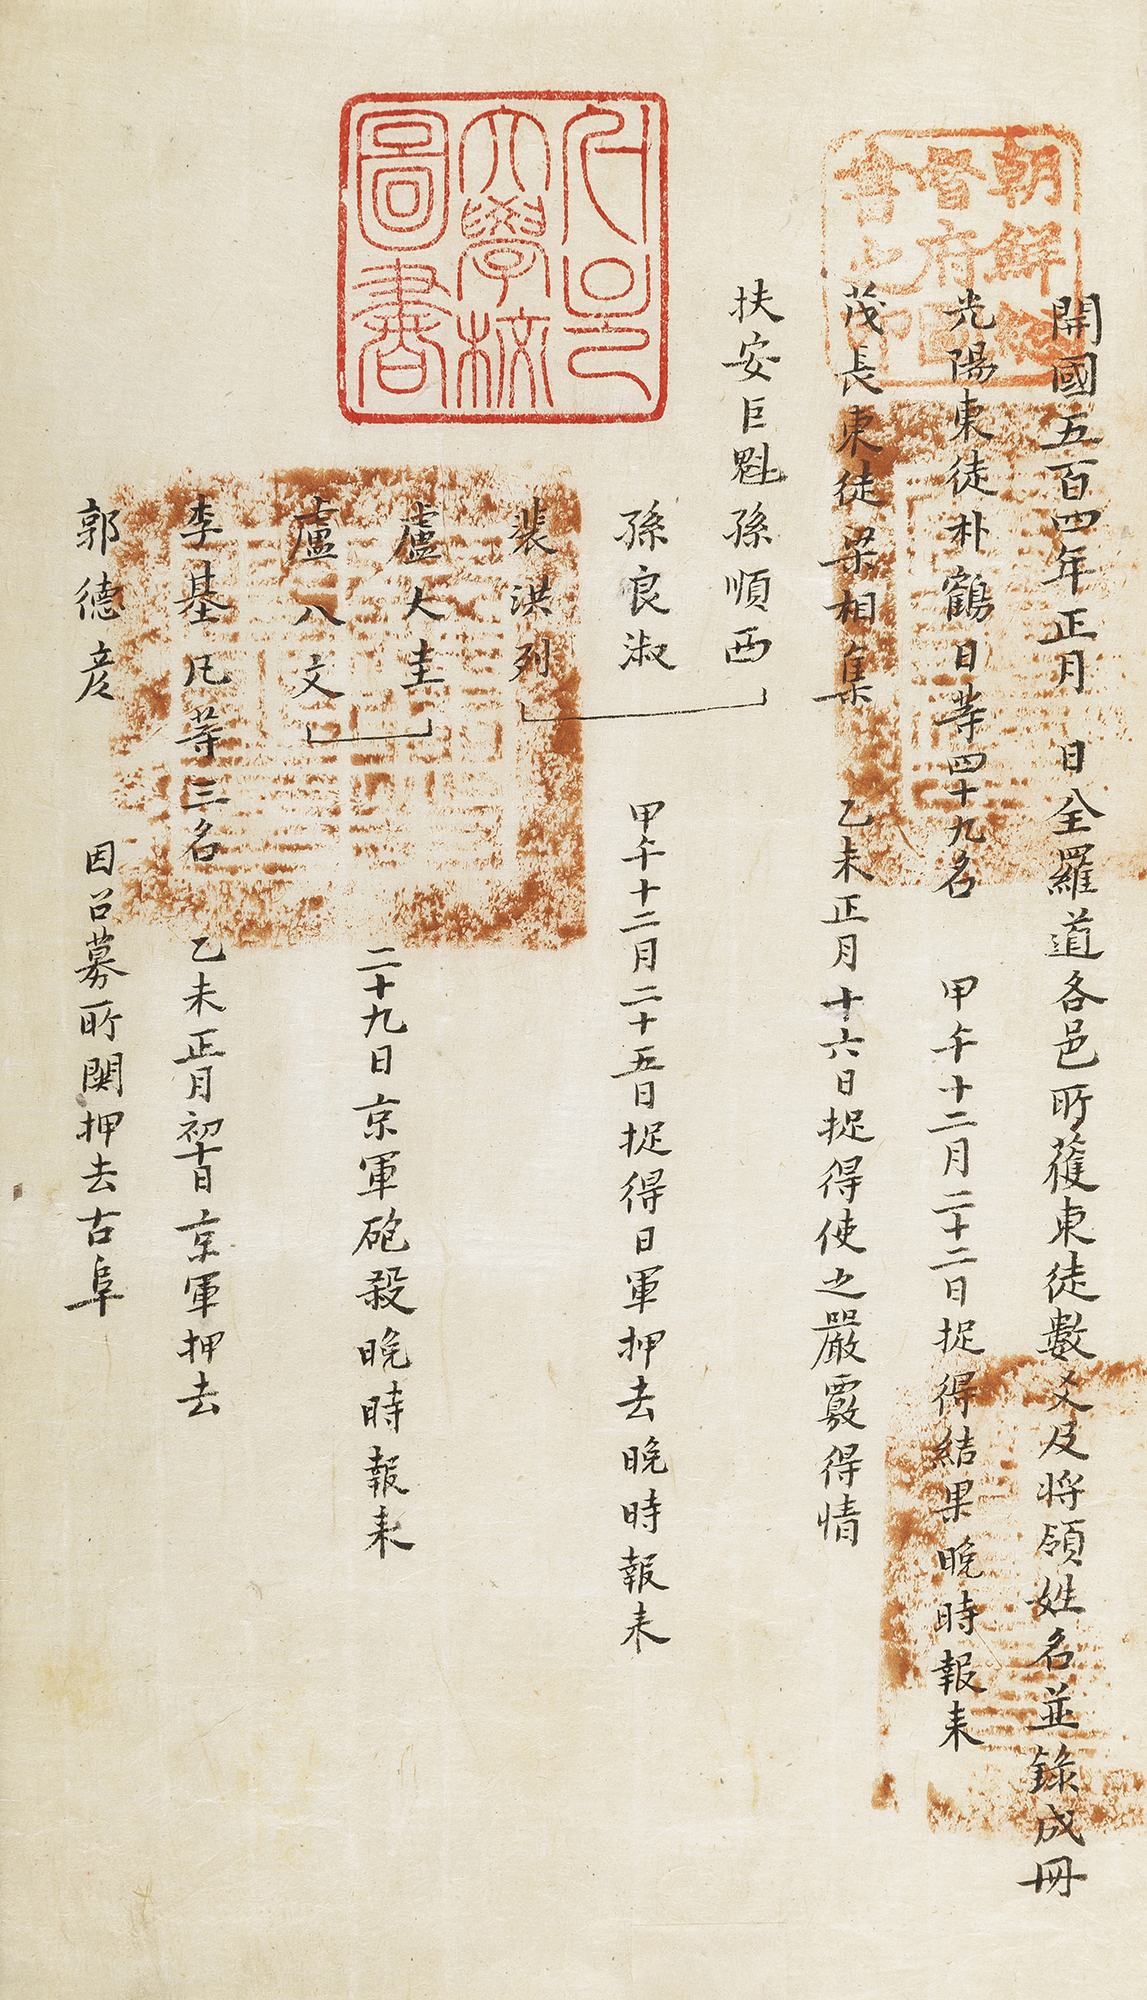 開國五百四年正月 日全羅道各邑所獲東徒數爻及將領姓名並錄成冊
光陽東徒朴鶴日等四十九名 甲午十二月二十二日捉得結果晩時報来
茂長東徒梁相集 乙未正月十六日捉得使之嚴覈得情
扶安巨魁孫順西
孫良淑 甲午十二月二十五日捉得日軍押去晩時報来
裴洪列
盧大圭
盧八文 二十九日京軍砲殺晩時報来
李基凡等三名 乙未正月初十日京軍押去
郭德彦 因召募所関押去古阜
朝鮮總
督府圖
書之印
大學校
圖書